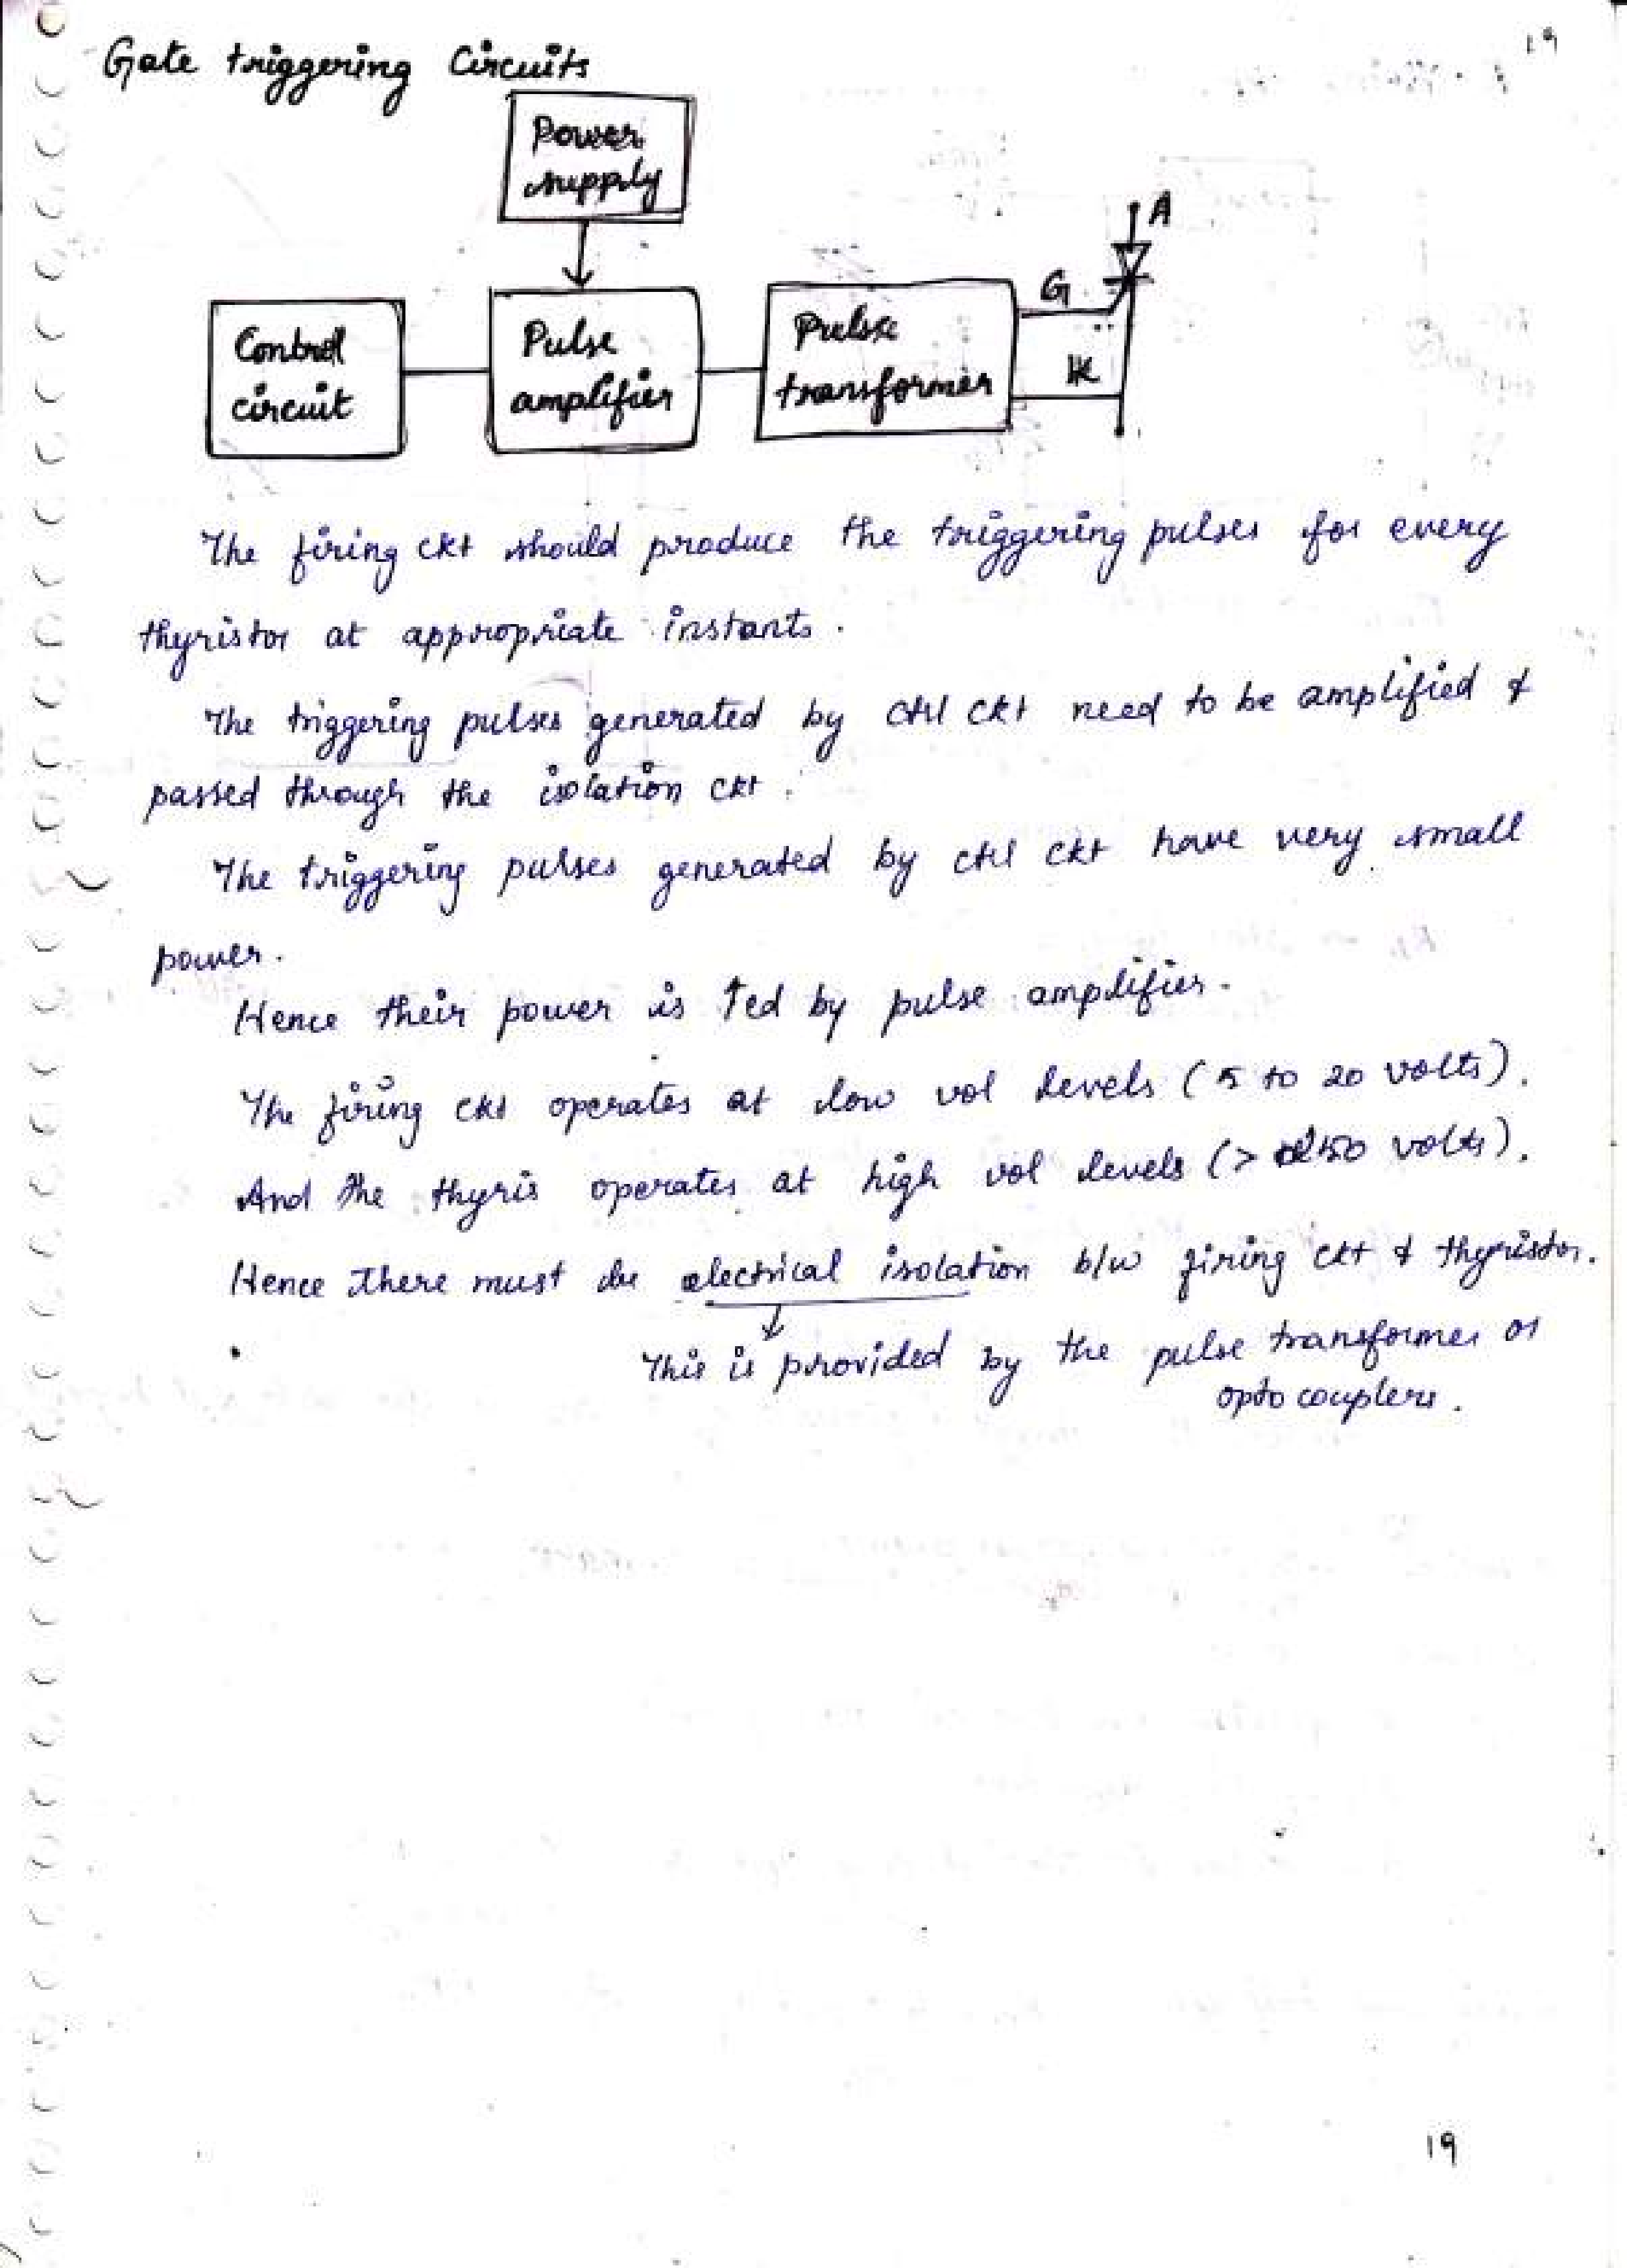 19
Gate triggering Circuits
Power
supply
A
G
Control
circuit
Pulse
amplifier
Pulse
transformer
K
The firing ckt should produce the triggering pulses for every
thyristor at appropriate instants.
The triggering pulses generated by ctrl ckt need to be amplified &
passed through the isolation ckt.
The triggering pulses generated by ctrl ckt have very small
power.
Hence their power is ↑ed by pulse amplifier.
The firing ckt operates at low vol levels (5 to 20 volts).
And the thyris operates at high vol levels (> 250 volts).
Hence there must be electrical isolation b/w firing ckt & thyristor.
This is provided by the pulse transformer or
opto couplers.
19